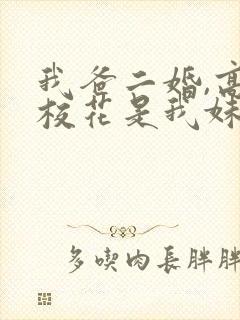 我爸二婚,高
校花是我妹
多喫肉長胖胖